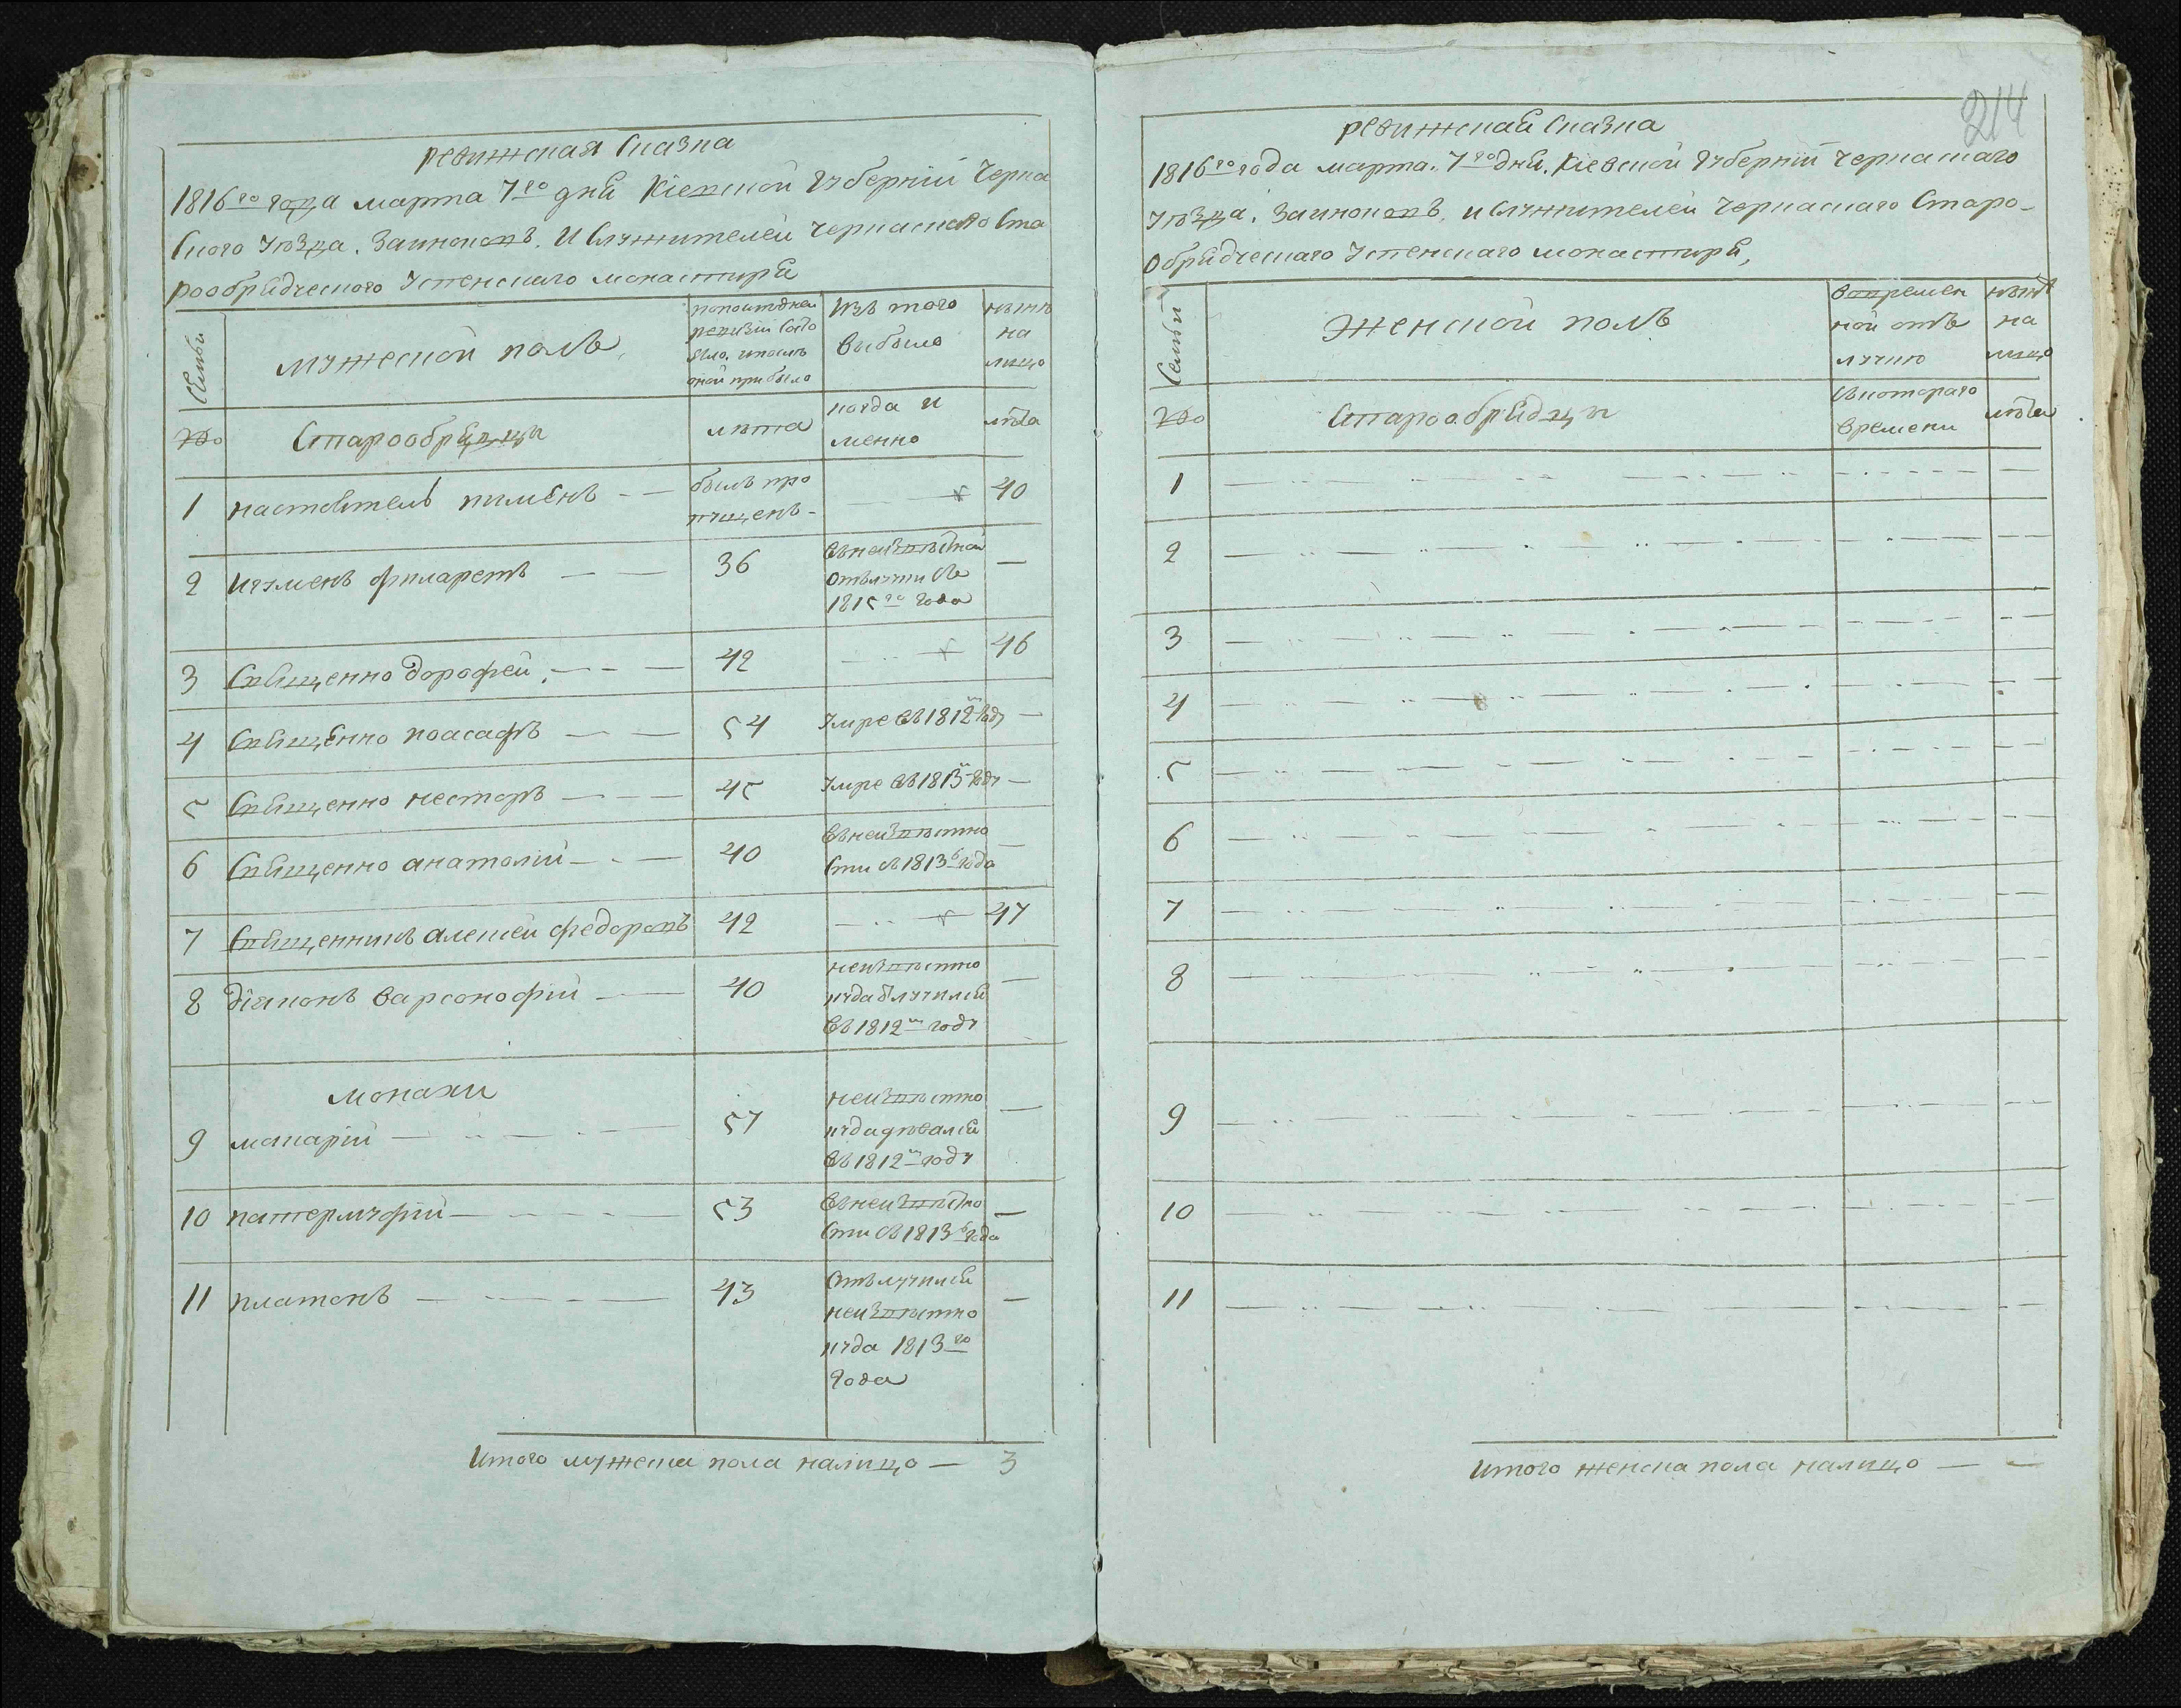 ревижская сказка
1816го года марта 7го дня Кіевской губерніи Черка
ского уѣзда. Заиноковъ. И служителей Черкаского Ста
рообрядческого Успенскаго монастыря
Семьи
мужеской полъ
попоследней
ревизіи состо
яло. ипослѣ
оной прибыло
изъ того
выбыло
нынѣ
на
лицо
№
Старообрядцы
лѣта
когда и
менно
лѣта
1 настоятель пименъ
былъ про
пущенъ
40
2 игуменъ филаретъ
36
въ неизвѣстной
отълучки съ
1815го года
3 Священно дорофей
42
46
4 Священно иоасафъ
54
Умре въ 1812м году
5 Священно несторъ
45
Умре въ 1813м году
6 Священно анатолій
40
въ неизвѣстно
сти съ 1813го года
7 Священникъ алексей федоровъ
42
47
8 діаконъ варсонофій
40
неизвѣстно
куда отлучился
въ 1812м году
монахи
9 макарій
57
неизвѣстно
куда девался
въ 1812м году
10 патермуфій
53
въ неизвѣстно
сти съ 1813го года
11 платонъ
43
отълучился
неизвѣстно
куда 1813го
года
Итого мужеска пола налицо — 3
214
ревижская сказка
1816го года марта. 7го дня. Кіевской губерніи Черкаскаго
уѣзда. Заиноковъ. и служителей Черкаскаго Старо-
обрядческаго Успенскаго монастыря,
Семьи
Женской полъ
вовремен
ной отъ
лучкѣ
нынѣ
на
лицо
№
Старообрядцы
съ котораго
времени
лѣта
1
2
3
4
5
6
7
8
9
10
11
Итого женска пола налицо — —